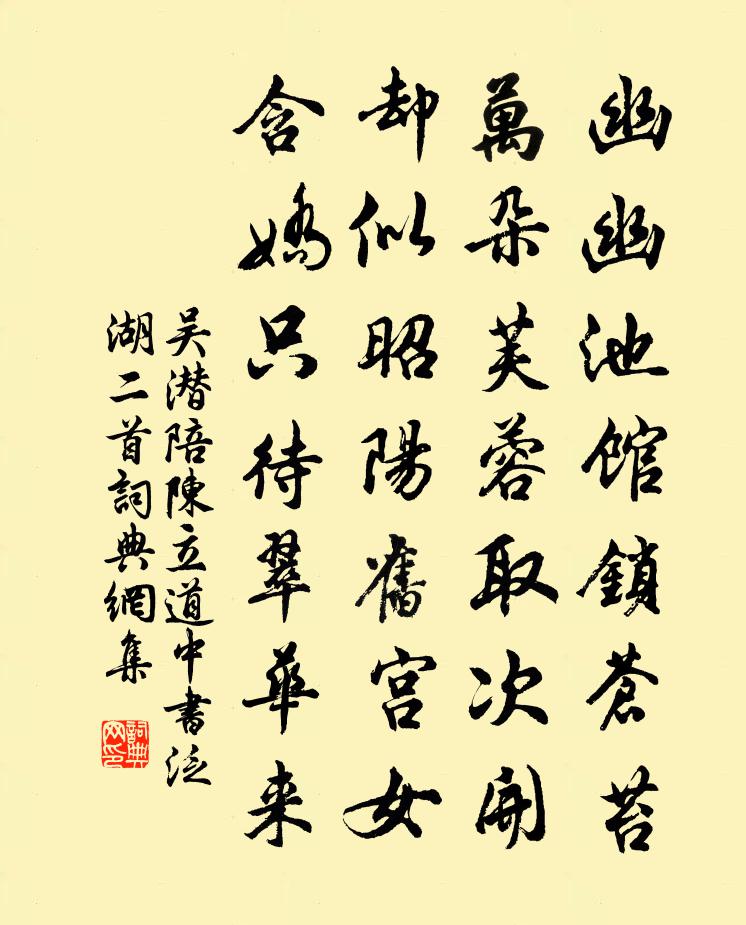 幽幽池馆鎖蒼苔
萬朵芙蓉取次開
却似昭陽舊宫女
含嬌只待翠華来
吴潜陪陳立道中書泛
湖二首詞典網集
詞典网印